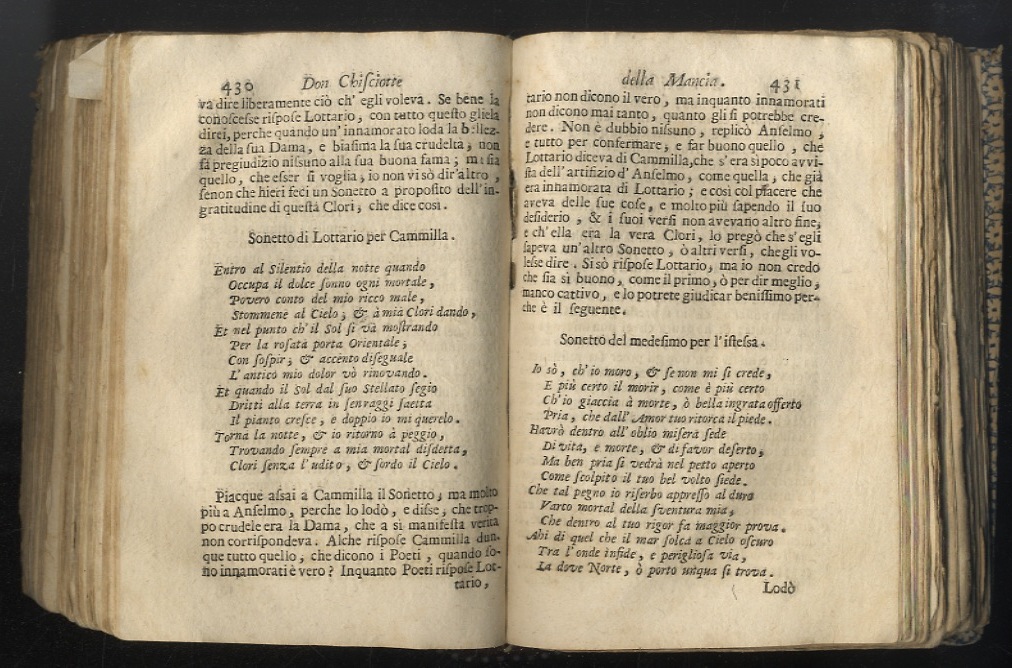 430 Don Chisciotte
va dire liberamente ciò ch' egli voleva. Se bene la
conoscesse rispose Lottario, con tutto questo gliela
direi, perche quando un' innamorato loda la bellez-
za della sua Dama, e biasima la sua crudeltà, non
fà pregiudizio nissuno alla sua buona fama; mi sia
quello, che esser si voglia, io non vi sò dir'altro,
senon che hieri feci un Sonetto a proposito dell'in-
gratitudine di questa Clori, che dice così.
Sonetto di Lottario per Cammilla.
Entro al Silentio della notte quando
Occupa il dolce sonno ogni mortale,
Povero conto del mio ricco male,
Stommene al Cielo; & à mia Clori dando,
Et nel punto ch' il Sol si và mostrando
Per la rosata porta Orientale;
Con sospir; & accento diseguale
L' antico mio dolor vò rinovando.
Et quando il Sol dal suo Stellato segio
Dritti alla terra in sen raggi saetta
Il pianto cresce, e doppio io mi querelo.
Torna la notte, & io ritorno à peggio,
Trovando sempre a mia mortal disdetta,
Clori senza l' udito, & sordo il Cielo.
Piacque assai a Cammilla il Sonetto, ma molto
più a Anselmo, perche lo lodò, e disse, che trop-
po crudele era la Dama, che a sì manifesta verità
non corrispondeva. Alche rispose Cammilla dun-
que tutto quello, che dicono i Poeti, quando so-
no innamorati è vero? Inquanto Poeti rispose Lot-
tario,
della Mancia. 431
tario non dicono il vero, ma inquanto innamorati
non dicono mai tanto, quanto gli si potrebbe cre-
dere. Non è dubbio nissuno, replicò Anselmo,
e tutto per confermare, e far buono quello, che
Lottario diceva di Cammilla, che s' era sì poco avvi-
sta dell' artifizio d' Anselmo, come quella, che già
era innamorata di Lottario; e così col piacere che
aveva delle sue cose, e molto più sapendo il suo
desiderio, & i suoi versi non avevano altro fine,
e ch' ella era la vera Clori, lo pregò che s' egli
sapeva un' altro Sonetto, ò altri versi, che gli vo-
lesse dire. Si sò rispose Lottario, ma io non credo
che sia sì buono, come il primo, ò per dir meglio,
manco cattivo, e lo potrete giudicar benissimo per-
che è il seguente.
Sonetto del medesimo per l' istessa.
Io sò, ch' io moro, & se non mi si crede,
E più certo il morir, come è più certo
Ch' io giaccia à morte, ò bella ingrata offerto
Pria, che dall' Amor tuo ritorca il piede.
Havrò dentro all' oblio misera sede
Di vita, e morte, & di favor deserto,
Ma ben pria si vedrà nel petto aperto
Come scolpito il tuo bel volto siede.
Che tal pegno io riserbo appresso al duro
Varco mortal della sventura mia,
Che dentro al tuo rigor fa maggior prova.
Ahi di quel che il mar solca a Cielo oscuro
Tra l' onde infide, e perigliosa via,
La dove Norte, ò porto unqua si trova.
Lodò